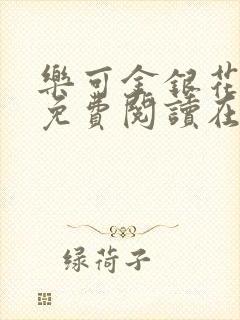 樂可金銀花
免費閱讀在
绿荷子